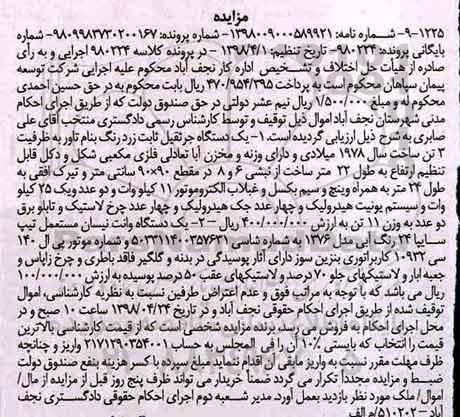 مزایده
۹-۱۲۲۵- شماره نامه: ۱۳۹۸۰۰۹۰۰۰۵۸۹۹۲۱- شماره پرونده: ۹۸۰۹۹۸۳۷۳۰۲۰۰۱۶۷- شماره
بایگانی پرونده: ۹۸۰۲۲۴- تاریخ تنظیم: ۱۳۹۸/۴/۱ - در پرونده کلاسه ۹۸۰۲۲۴ اجرایی و به رأی
صادره از هیأت حل اختلاف و تشخیص اداره کار نجف آباد محکوم علیه اجرایی شرکت توسعه
پیمان سپاهان محکوم است به پرداخت ۴۷۰/۹۵۴/۳۹۵ ریال بابت محکوم به در حق حسین احمدی
محکوم له و مبلغ ۱/۵۰۰/۰۰۰ ریال نیم عشر دولتی در حق صندوق دولت که از طریق اجرای احکام
مدنی شهرستان نجف آباد اموال ذیل توقیف و توسط کارشناس رسمی دادگستری منتخب آقای علی
صابری به شرح ذیل ارزیابی گردیده است. ۱- یک دستگاه جرثقیل ثابت زرد رنگ بنام تاور به ظرفیت
۳ تن ساخت سال ۱۹۷۸ میلادی و دارای وزنه و مخزن آبا تعادلی فلزی مکعبی شکل و دکل قابل
تنظیم ارتفاع به طول ۲۲ متر ساخت از نبشی ۶ و ۸ در مقطع ۹۰×۹۰ سانتی متر و تیرک افقی به
طول ۲۴ متر به همراه وینچ و سیم بکسل و غیلاب الکتروموتور ۱۱ کیلو وات و دو عدد ویک ۲۵ کیلو
وات و سیستم یونیت هیدرولیک و چهار عدد جک هیدرولیک و چهار عدد چرخ لاستیک و تابلو برق
دو عدد به وزن ۱۱ تن به ارزش ۴۰۰/۰۰۰/۰۰۰ ریال -۲- یک دستگاه وانت نیسان مستعمل تیپ
سایپا ۲۴ رنگ آبی مدل ۱۳۷۶ به شماره شاسی ۵۰۳۳۱۱۴۰۰۳۵۷۶۳۱ و شماره موتور پی ال ۱۴۰
سی ۱۰۹۳۲ کاربراتوری بنزین سوز دارای آثار پوسیدگی در بدنه و گلگیر فاقد باطری و چرخ زاپاس و
جعبه ابار و لاستیکهای جلو ۷۰ درصد و لاستیکهای عقب ۵۰ درصد پوسیده به ارزش ۱۰۰/۰۰۰/۰۰۰
ریال می باشد که با توجه به مراتب فوق و عدم اعتراض طرفین نسبت به نظریه کارشناسی، اموال
توقیف شده از طریق اجرای احکام حقوقی نجف آباد و در تاریخ ۱۳۹۸/۰۴/۲۴ ساعت ۱۰ صبح و در
محل اجرای احکام به فروش می رسد، برنده مزایده شخصی است که از قیمت کارشناسی بالاترین
قیمت را انتخاب که بایستی ۱۰٪ آن را فی المجلس به حساب ۲۱۷۱۲۹۰۳۵۴۰۰۱ واریز و چنانچه
ظرف مهلت مقرر نسبت به واریز مابقی آن اقدام ننماید مبلغ سپرده با کسر هزینه بنفع صندوق دولت
ضبط و مزایده مجدداً تکرار می گردد ضمناً خریدار می تواند ظرف پنج روز قبل از مزایده از مال/
اموال/ ملک مورد نظر بازدید بعمل آورد. مدیر شعبه دوم اجرای احکام حقوقی دادگستری نجف
آباد-۵۱۰۲۰۲/م الف